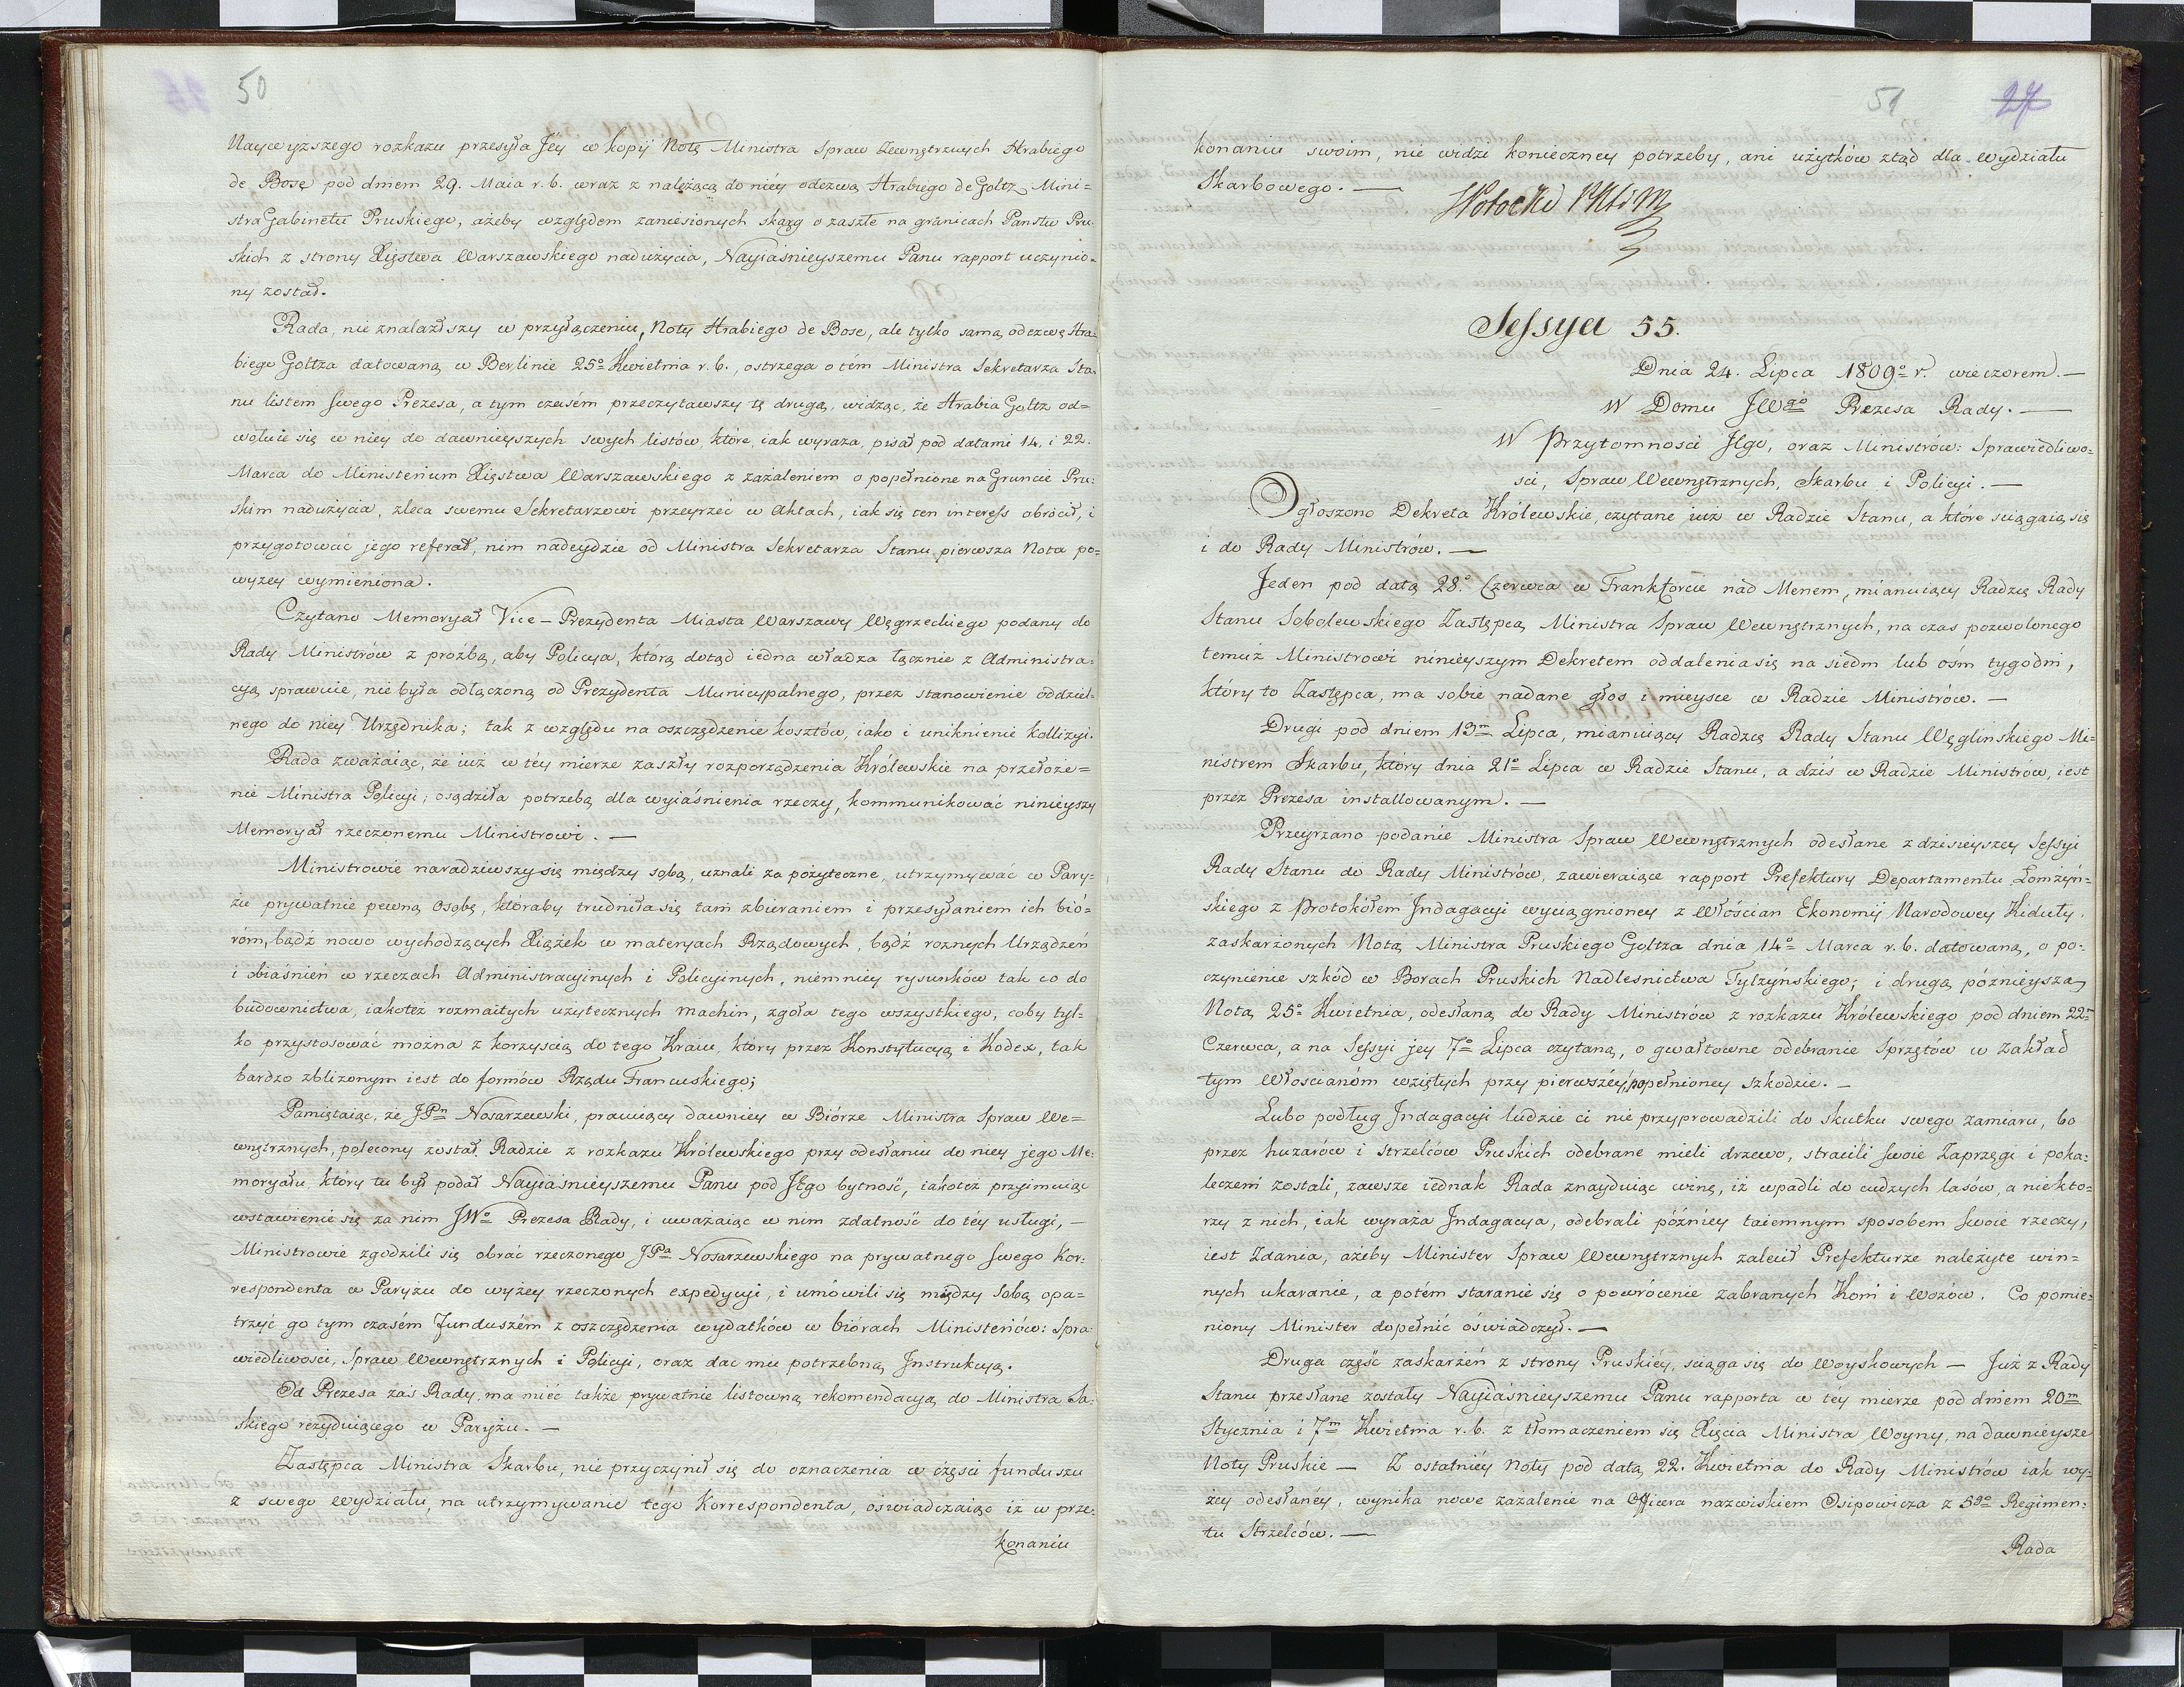 50
Naywyższego rozkazu przesyła Jéy w kopij Notę Ministra Spraw Zewnętrznych Hrabiego
de Bosę pod dniem 29. Maia r. b. wraz z należącą do niéy odezwą Hrabiego de Goltz Mini=
stra Gabinetu Pruskiego, ażeby względem zaniesionych skarg o zaszłe na granicach Państw Pru-
skich z strony Xięstwa Warszawskiego nadużycia, Nayiaśnieyszemu Panu rapport uczynio-
ny został.
Rada, nie znalazłszy w przyłączeniu, Noty Hrabiego de Bose, ale tylko samą odezwę Hra-
biego Goltza datowaną w Berlinie 25º Kwietnia r. b., ostrzega o tém Ministra Sekretarza Sta-
nu listem swego Prezesa, a tym czasém przeczytawszy tę drugą, widząc, że Hrabia Goltz od=
wołuie się w niey do dawnieyszych swych listów, które, iak wyraża, pisał pod datami 14. i 22.
Marca do Ministerium Xięstwa Warszawskiego z zażaleniem o popełnione na Gruncie Pru:
skim nadużycia, zleca swemu Sekretarzowi przeyrzeć w Aktach, iak się ten interess obrócił, i
przygotować jego referat, nim nadeydzie od Ministra Sekretarza Stanu pierwsza Nota po=
wyżey wymieniona.
Czytano Memoryał Vice-Prezydenta Miasta Warszawy Węgrzeckiego podany do
Rady Ministrów z proźbą, aby Policya, którą dotąd iedna władza łącznie z Administra-
cyą sprawuie, nie była odłączoną od Prezydenta Municypalnego, przez stanowienie oddziel-
nego do niey Urzędnika; tak z względu na oszczędzenie kosztów, iako i uniknienie kollizyi.
Rada zważaiąc, że iuż w téy mierze zaszły rozporządzenia Królewskie na przełoże=
nie Ministra Policyi; osądziła potrzebą dla wyiaśnienia rzeczy, kommunikować ninieyszy
Memoryał rzeczonemu Ministrowi. —
Ministrowie naradziwszy się między sobą, uznali za pożyteczne, utrzymywać w Pary-
żu prywatnie pewną Osobę, któraby trudniła się tam zbieraniem i przesyłaniem ich bió-
róm, bądź nowo wychodzących Xiążek w materyach Rządowych, bądź roznych Urządzeń
i obiaśnień w rzeczach Administracyinych i Policyinych, niemniey rysunków tak co do
budownictwa, iakoteż rozmaitych użytecznych machin, zgoła tego wszystkiego, coby tyl=
ko przystosować można z korzyścią do tego Kraiu, który przez Konstytucyą i Kodex, tak
bardzo zbliżonym iest do formów Rządu Francuskiego;
Pamiętaiąc, że JPn Nosarzewski, pracuiący dawniey w Biórze Ministra Spraw We=
wnętrznych, polecony został Radzie z rozkazu Królewskiego przy odesłaniu do niey jego Me:
moryału, który tu był podał Nayiaśnieyszemu Panu pod Jego bytność, iakoteż przyimuiąc
wstawienie się za nim JWº Prezesa Rady, i uważaiąc w nim zdatność do téy usługi, —
Ministrowie zgodzili się obrać rzeczonego JPa Nosarzewskiego na prywatnego swego Kor:
respondenta w Paryżu do wyżey rzeczonych expedycyi, i umówili się między sobą opa=
trzyć go tym czasém funduszém z oszczędzenia wydatków w biórach Ministeriów: Spra-
wiedliwości, Spraw Wewnętrznych i Policyi, oraz dać mu potrzebną Instrukcyą.
Od Prezesa zaś Rady, ma mieć także prywatnie listowną rekomendacyą do Ministra Sa-
skiego rezyduiącego w Paryżu. —
Zastępca Ministra Skarbu, nie przyczynił się do oznaczenia w części funduszu
z swego Wydziału, na utrzymywanie tego Korrespondenta, oświadczaiąc iż w prze-
konaniu
51
27
konaniu swoim, nie widzi konieczney potrzeby, ani użytków ztąd dla Wydziału
Skarbowego. —
Sessya 55.
Dnia 24. Lipca 1809º r. wieczorem. —
W Domu JWgo Prezesa Rady. —
W Przytomności Jego, oraz Ministrów: Sprawiedliwo=
ści, Spraw Wewnętrznych, Skarbu i Policyi. —
Ogłoszono Dekreta Królewskie, czytane iuż w Radzie Stanu, a które sciągaią się
i do Rady Ministrów. —
Jeden pod datą 28º Czerwca w Frankforcie nad Menem, mianuiący Radzcę Rady
Stanu Sobolewskiego Zastępcą Ministra Spraw Wewnętrznych, na czas pozwolonego
temuż Ministrowi ninieyszym Dekretem oddalenia się na siedm lub ośm tygodni,
który to Zastępca, ma sobie nadane głos i mieysce w Radzie Ministrów. —
Drugi pod dniem 13m Lipca, mianuiący Radzcę Rady Stanu Węglińskiego Mi=
nistrem Skarbu, który dnia 21º Lipca w Radzie Stanu, a dziś w Radzie Ministrów, iest
przez Prezesa installowanym. —
Przeyrzano podanie Ministra Spraw Wewnętrznych odesłane z dzisieyszey Sessyi
Rady Stanu do Rady Ministrów, zawieraiące rapport Prefektury Departamentu Łomżyń=
skiego z Protokółem Indagacyi wyciągnioney z Włościan Ekonomij Narodowey Kiduły,
zaskarżonych Notą Ministra Pruskiego Goltza dnia 14º Marca r. b. datowaną, o po-
czynienie szkód w Borach Pruskich Nadlesnictwa Tylżyńskiego; i drugą póznieyszą
Notą 25º Kwietnia, odesłaną do Rady Ministrów z rozkazu Królewskiego pod dniem 22m
Czerwca, a na Sessyi jey 7º Lipca czytaną, o gwałtowne odebranie Sprzętów w zakład
tym Włościanóm wziętych przy pierwszéy popełnioney szkodzie. —
Lubo podług Indagacyi ludzie ci nie przyprowadzili do skutku swego zamiaru, bo
przez huzarów i Strzelców Pruskich odebrane mieli drzewo, stracili swoie Zaprzęgi i poka-
leczeni zostali, zawsze iednak Rada znayduiąc winę, iż wpadli do cudzych lasów, a niektó=
rzy z nich, iak wyraża Indagacya, odebrali późniey taiemnym sposobem swoie rzeczy,
iest Zdania, ażeby Minister Spraw Wewnętrznych zalecił Prefekturze należyte win=
nych ukaranie, a potém staranie się o powrócenie zabranych Koni i Wozów. Co pomie-
niony Minister dopełnić oświadczył. —
Druga część zaskarżeń z strony Pruskiéy, sciąga się do Woyskowych — Już z Rady
Stanu przesłane zostały Nayiaśnieyszemu Panu rapporta w téy mierze pod dniem 20m
Stycznia i 7m Kwietnia r. b. z tłomaczeniem się Xięcia Ministra Woyny, na dawnieysze
Noty Pruskie — Z ostatniéy Noty pod datą 22. Kwietnia do Rady Ministrów iak wy-
żey odesłanéy, wynika nowe zażalenie na Officera nazwiskiem Osipowicza z 5go Regimen-
tu Strzelców. —
Rada